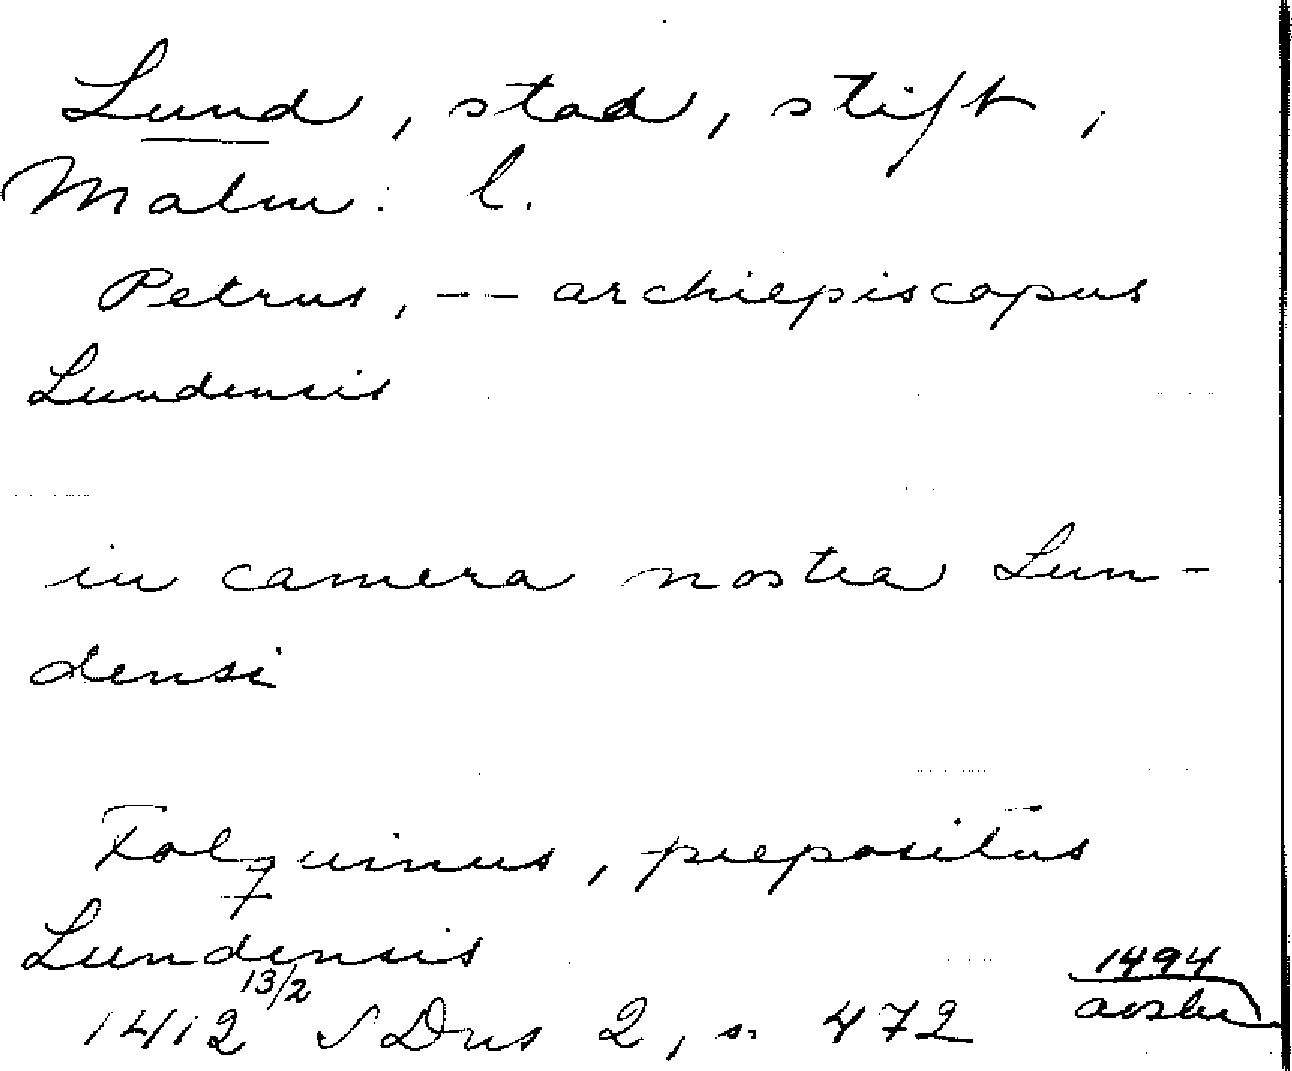 Lund, stad, stift,
Malm: l.
Petrus, -- archiepiscopus
Lundensis
in camera nostra Lun-
densi
Folquinus, prepositus
Lundensis
1412 13/2 SDns 2, s. 472
1494
avskr